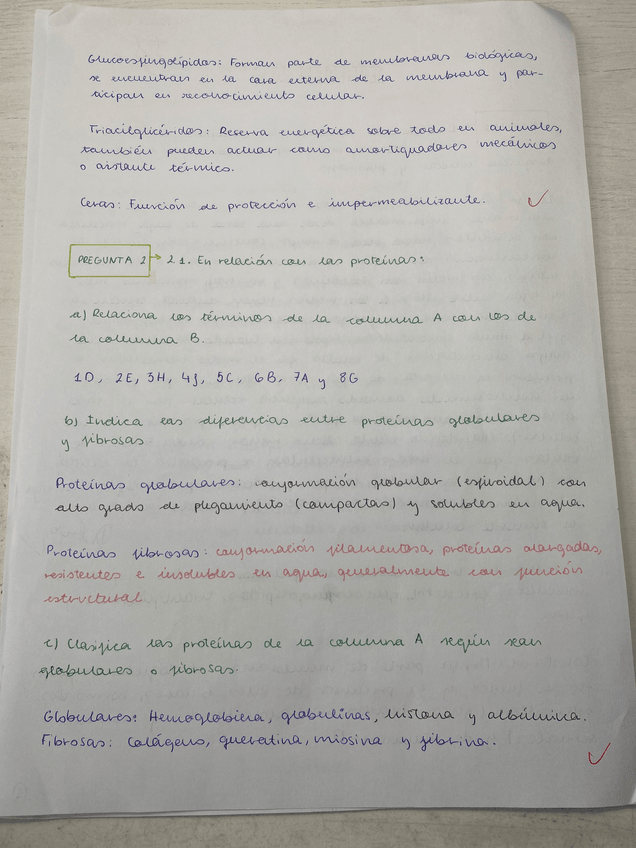 Glucoesfingolípidos: Forman parte de membranas biológicas,
se encuentran en la cara externa de la membrana y par-
ticipan en reconocimiento celular.
Triacilglicéridos: Reserva energética sobre todo en animales,
también pueden actuar como amortiguadores mecánicos
o aislante térmico.
Ceras: Función de protección e impermeabilizante.
PREGUNTA 2 → 2.1. En relación con las proteínas:
a) Relaciona los términos de la columna A con los de
la columna B.
1D, 2E, 3H, 4J, 5C, 6B, 7A y 8G
b) Indica las diferencias entre proteínas globulares
y fibrosas
Proteínas globulares: conformación globular (esfiroidal) con
alto grado de plegamiento (compactas) y solubles en agua.
Proteínas fibrosas: conformación filamentosa, proteínas alargadas,
resistentes e insolubles en agua, generalmente con función
estructural
c) Clasifica las proteínas de la columna A según sean
globulares o fibrosas.
Globulares: Hemoglobina, globulinas, histona y albúmina.
Fibrosas: Colágeno, queratina, miosina y fibrina.